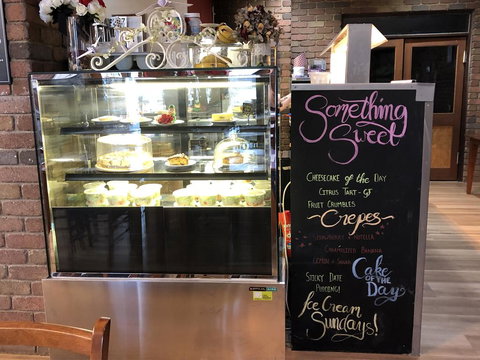 Something
Sweet
Cheesecake of the Day
Citrus Tart - GF
Fruit Crumbles
~Crepes~
Strawberry & Nutella
Caramelized Banana
Lemon & Sugar
Cake
of the
Day
Sticky Date
Pudding
Ice Cream
Sundays!